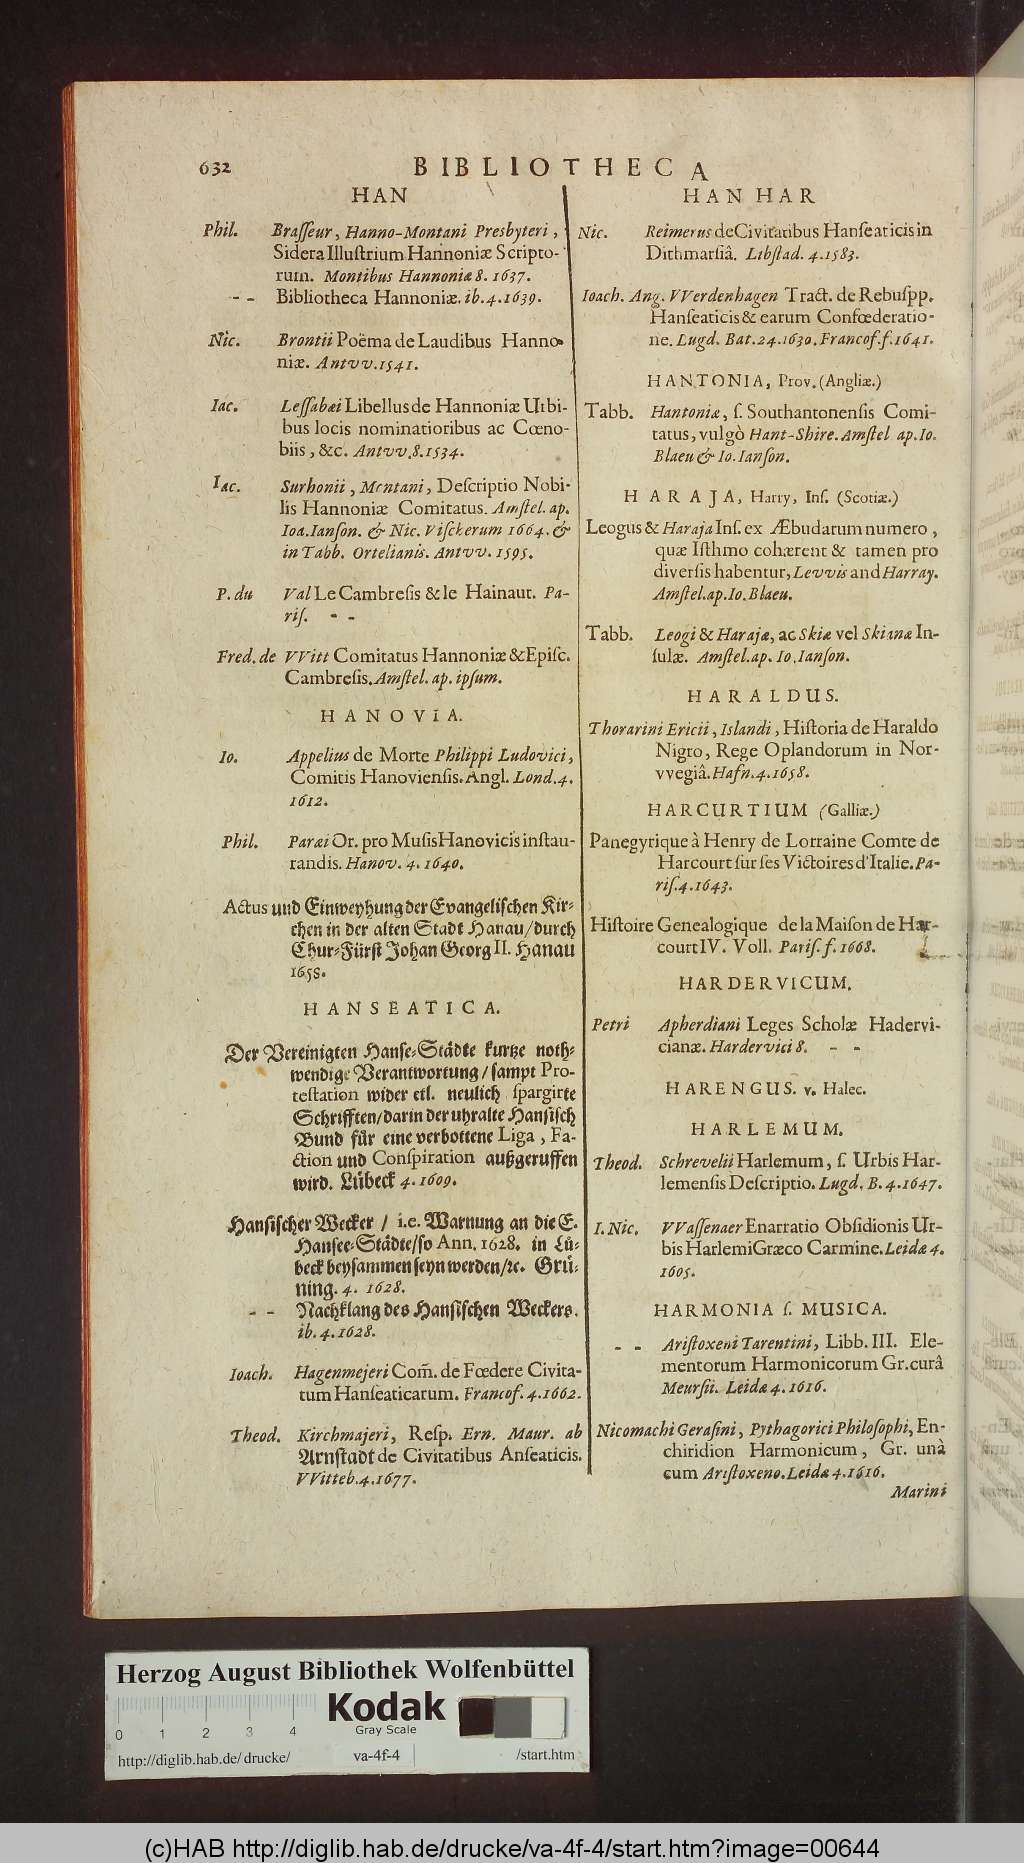 632
BIBLIOTHECA
HAN
Phil. Braſſeur, Hanno-Montani Presbyteri,
Sidera Illuſtrium Hannoniæ Scripto-
rum. Montibus Hannoniæ 8. 1637.
-- Bibliotheca Hannoniæ. ib. 4. 1639.
Nic. Brontii Poëma de Laudibus Hanno-
niæ. Antvv. 1541.
Iac. Leſſabæi Libellus de Hannoniæ Urbi-
bus locis nominatioribus ac Cœno-
biis, &c. Antvv. 8. 1534.
Iac. Surhonii, Montani, Deſcriptio Nobi-
lis Hannoniæ Comitatus. Amſtel. ap.
Ioa. Ianſon. & Nic. Viſcherum 1664. &
in Tabb. Ortelianis. Antvv. 1595.
P. du Val Le Cambreſis & le Hainaut. Pa-
riſ. --
Fred. de VVitt Comitatus Hannoniæ & Epiſc.
Cambreſis. Amſtel. ap. ipſum.
HANOVIA.
Io. Appelius de Morte Philippi Ludovici,
Comitis Hanovienſis. Angl. Lond. 4.
1612.
Phil. Paræi Or. pro Muſis Hanovicis inſtau-
randis. Hanov. 4. 1640.
Actus und Einweyhung der Evangeliſchen Kir-
chen in der alten Stadt Hanau/ durch
Chur-Fürſt Johan Georg II. Hanau
1658.
HANSEATICA.
Der Vereinigten Hanſe-Städte kurtze noth-
wendige Verantwortung/ ſampt Pro-
teſtation wider etl. neulich ſpargirte
Schrifften/ darin der uhralte Hanſiſch
Bund für eine verbottene Liga, Fa-
ction und Conſpiration außgeruffen
wird. Lübeck 4. 1609.
Hanſiſcher Wecker / i.e. Warnung an die E.
Hanſee-Städte/ ſo Ann. 1628. in Lü-
beck beyſammen ſeyn werden/ ꝛc. Grü-
ning. 4. 1628.
-- Nachklang des Hanſiſchen Weckers.
ib. 4. 1628.
Ioach. Hagenmejeri Com̃. de Fœdere Civita-
tum Hanſeaticarum. Francof. 4. 1662.
Theod. Kirchmajeri, Reſp. Ern. Maur. ab
Arnſtadt de Civitatibus Anſeaticis.
VVitteb. 4. 1677.
HAN HAR
Nic. Reimerus de Civitatibus Hanſeaticis in
Dithmarſiâ. Libſtad. 4. 1583.
Ioach. Ang. VVerdenhagen Tract. de Rebuſpp.
Hanſeaticis & earum Confœderatio-
ne. Lugd. Bat. 24. 1630. Francof. f. 1641.
HANTONIA, Prov. (Angliæ.)
Tabb. Hantoniæ, ſ. Southantonenſis Comi-
tatus, vulgò Hant-Shire. Amſtel ap. Io.
Blaeu & Io. Ianſon.
HARAJA, Harry, Inſ. (Scotiæ.)
Leogus & Haraja Inſ. ex Æbudarum numero,
quæ Iſthmo cohærent & tamen pro
diverſis habentur, Levvis and Harray.
Amſtel. ap. Io. Blaeu.
Tabb. Leogi & Harajæ, ac Skiæ vel Skianæ In-
ſulæ. Amſtel. ap. Io. Ianſon.
HARALDUS.
Thorarini Ericii, Islandi, Hiſtoria de Haraldo
Nigro, Rege Oplandorum in Nor-
vvegiâ. Hafn. 4. 1658.
HARCURTIUM (Galliæ.)
Panegyrique à Henry de Lorraine Comte de
Harcourt ſur ſes Victoires d'Italie. Pa-
riſ. 4. 1643.
Hiſtoire Genealogique de la Maiſon de Har-
court IV. Voll. Pariſ. f. 1668.
HARDERVICUM.
Petri Apherdiani Leges Scholæ Hadervi-
cianæ. Hardervici 8. --
HARENGUS. v. Halec.
HARLEMUM.
Theod. Schrevelii Harlemum, ſ. Urbis Har-
lemenſis Deſcriptio. Lugd. B. 4. 1647.
I. Nic. VVaſſenaer Enarratio Obſidionis Ur-
bis Harlemi Græco Carmine. Leidæ 4.
1605.
HARMONIA ſ. MUSICA.
-- Ariſtoxeni Tarentini, Libb. III. Ele-
mentorum Harmonicorum Gr. curâ
Meurſii. Leidæ 4. 1616.
Nicomachi Geraſini, Pythagorici Philoſophi, En-
chiridion Harmonicum, Gr. unà
cum Ariſtoxeno. Leidæ 4. 1616.
Marini
Herzog August Bibliothek Wolfenbüttel
Kodak
Gray Scale
0 1 2 3 4
http://diglib.hab.de/drucke/ va-4f-4 /start.htm
(c)HAB http://diglib.hab.de/drucke/va-4f-4/start.htm?image=00644